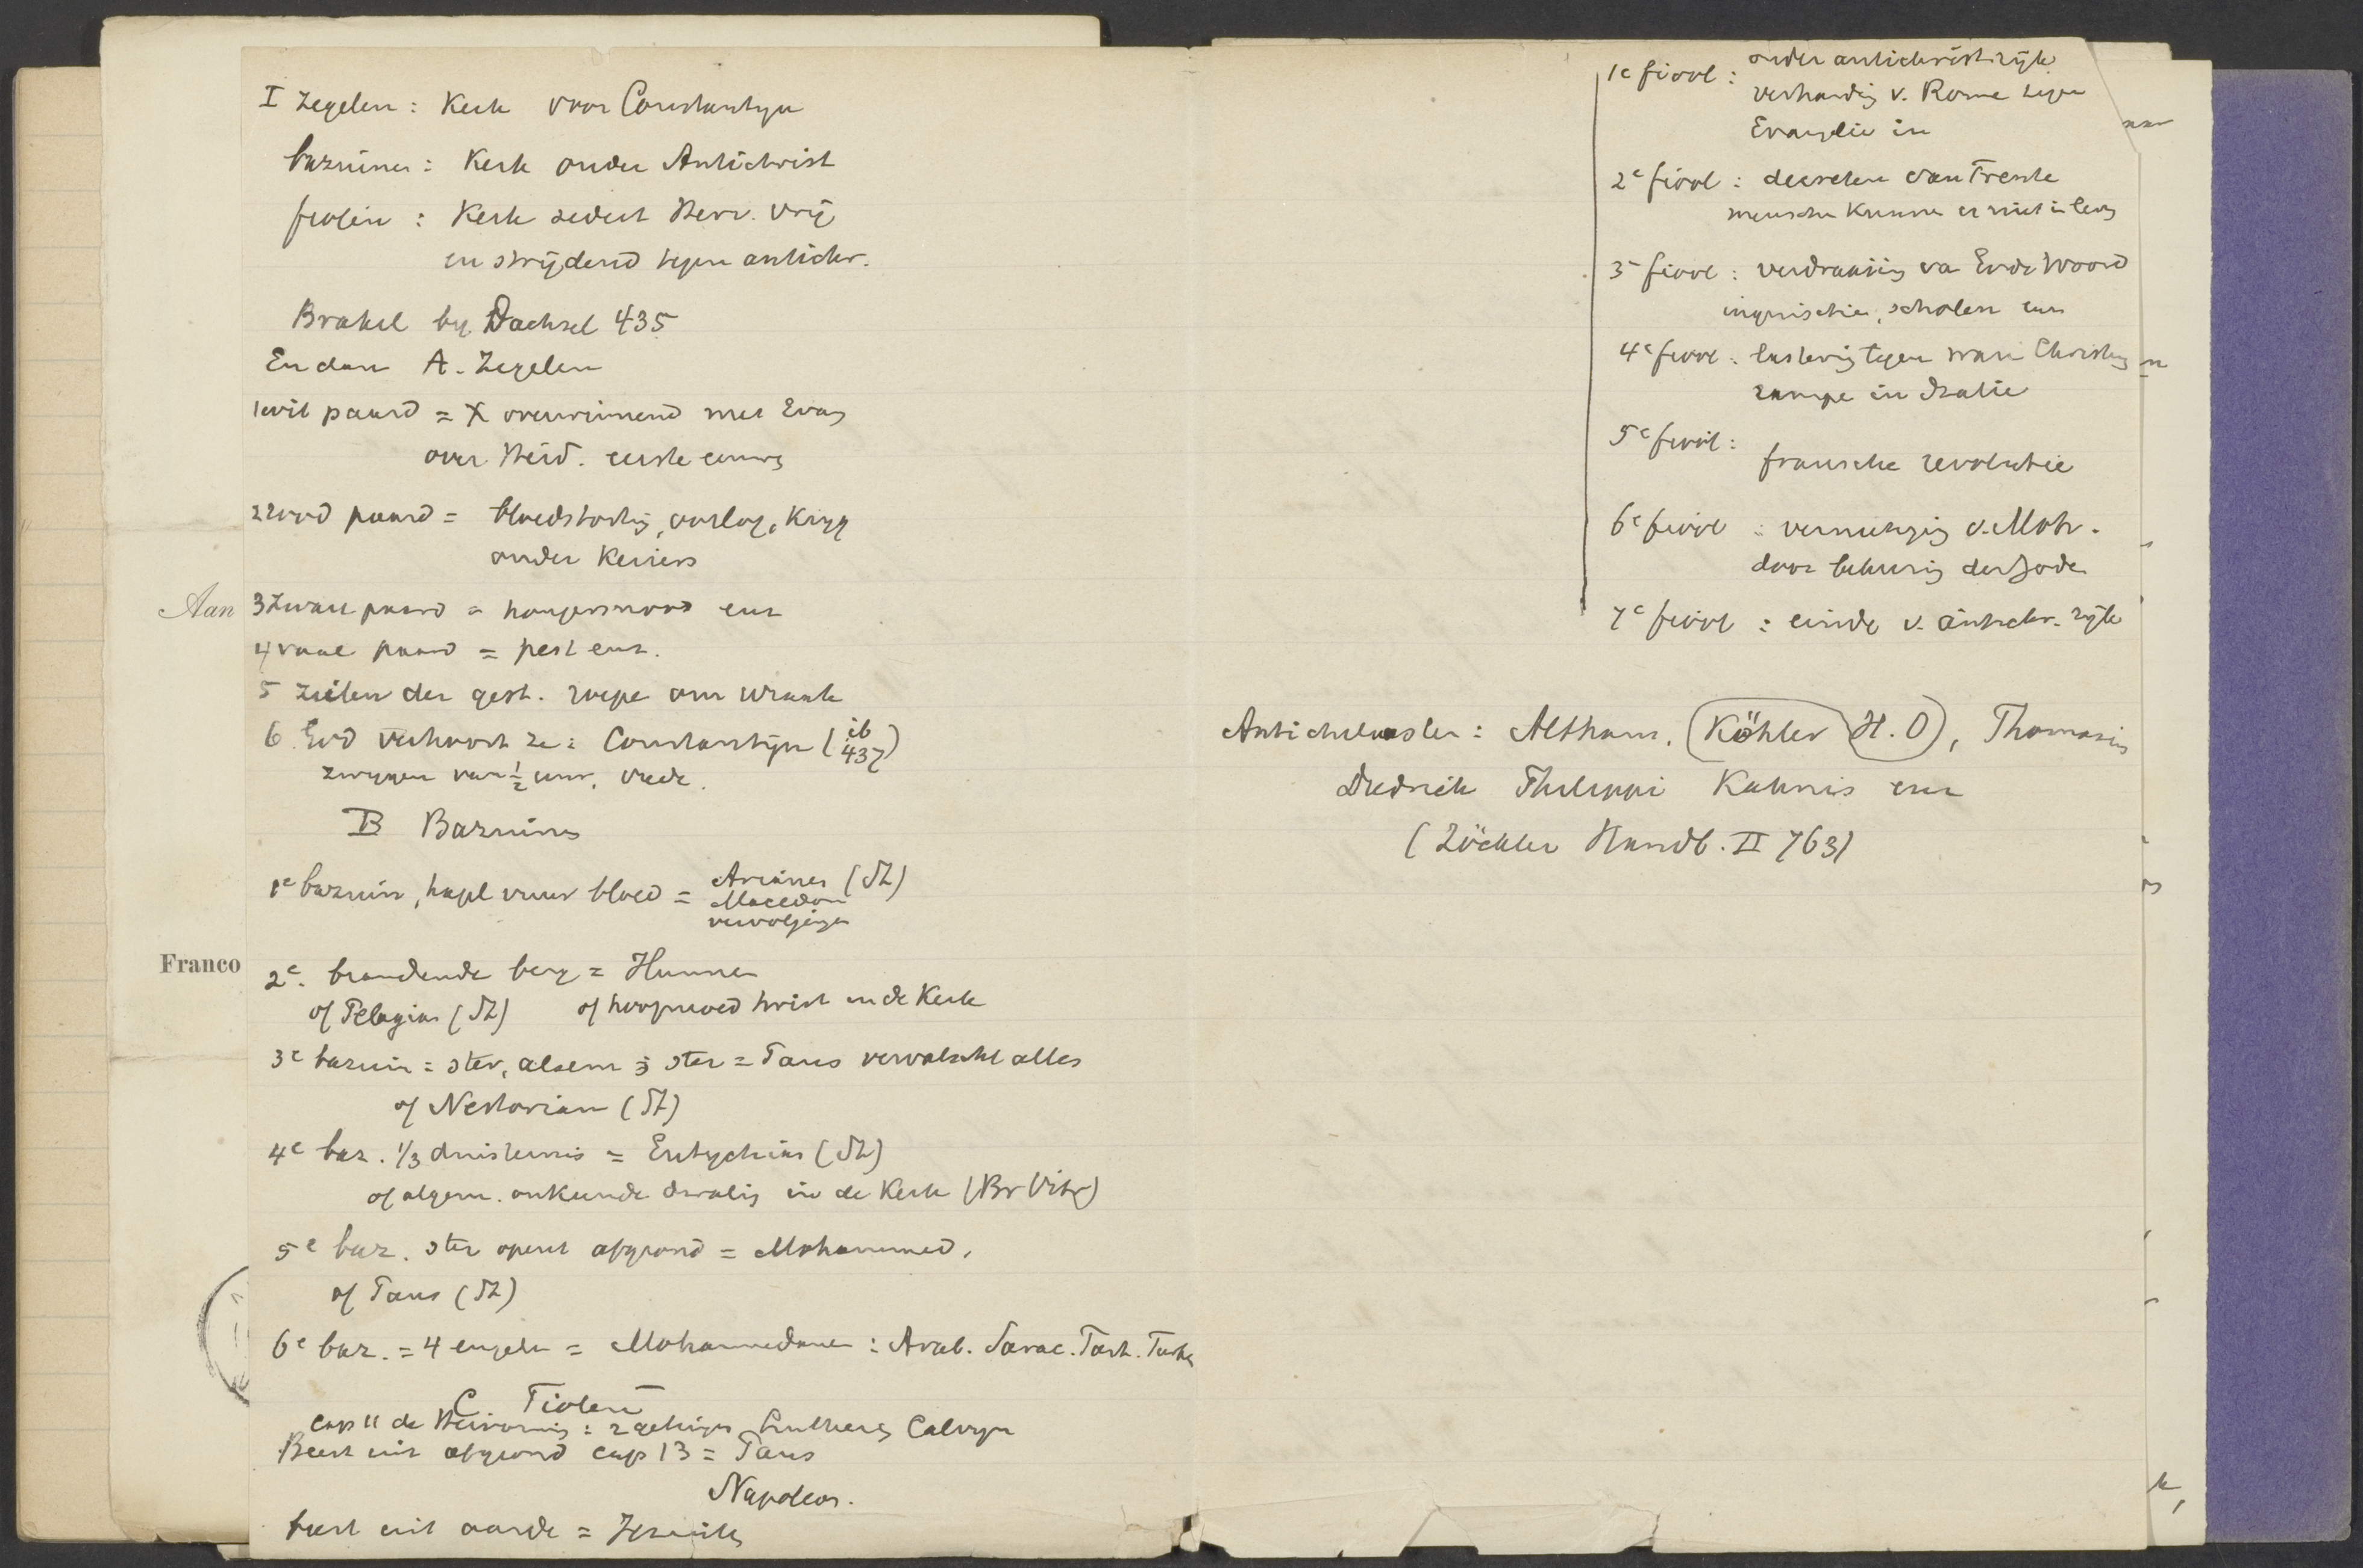 I zegelen: Kerk voor Constantyn
bazuinen: Kerk onder Antichrist
fiolen: Kerk sedert Herv. vrij
en strijdend tegen antichr.
Brakel by Dachsel 435
En dan A. Zegelen
1 wit paard = X overwinnend met Evang
over Heid. eerste eeuwen
2 rood paard = bloedstorting, oorlog, Kryg
onder Keizers
Aan
3 Zwart paard = hongersnood enz
4 vaal paard = pest enz.
5 zielen der gest. roepen om wraak
6 Eerd verhoort ze: Constantijn (ib 437)
zwijgen van ½ uur, vrede.
B Bazuinen
1e bazuin, hagel vuur bloed = Arianen (JZ)
Macedon
vervolgingen
Franco
2e. brandende berg = Hunnen
of Pelagius (JZ) of hoogmoed twist in de Kerk
3e bazuin = ster, alsem; ster = Paus vervalscht alles
of Nestorian (JZ)
4e baz. 1/3 duisternis = Eutychius (JZ)
of algem. onkunde dwaling in de Kerk (Br Vitr)
5e baz. ster opent afgrond = Mohammed,
of Paus (JZ)
6e baz. = 4 engelen = Mohammedanen: Arab. Sarac. Tart. Turken
C Fiolen
cap 11 de Hervorming: 2 getuigen Luther en Calvyn
Beest uit afgrond cap 13 = Paus
Napoleon.
beest uit aarde = Jezuiten
1e fiool: onder antichrist. rijk
verharding v. Rome tegen
Evangelie in
2e fiool: decreten van Trente
menschen kunnen er niet in leven
3e fiool: verdraaiing van Gods Woord
inquisitie, scholen enz
4e fiool: lastering tegen ware Christenen
rampen in Italie
5e fiool:
fransche revolutie
6e fiool: vernietiging v. Moh.
door bekeering der Joden
7e fiool: einde v. antichr. rijk
Antichiliasten: Althaus, (Köhler H. O), Thomasius
Diedrich Philippi Kahnis enz
(Zöckler Handb. II 763)